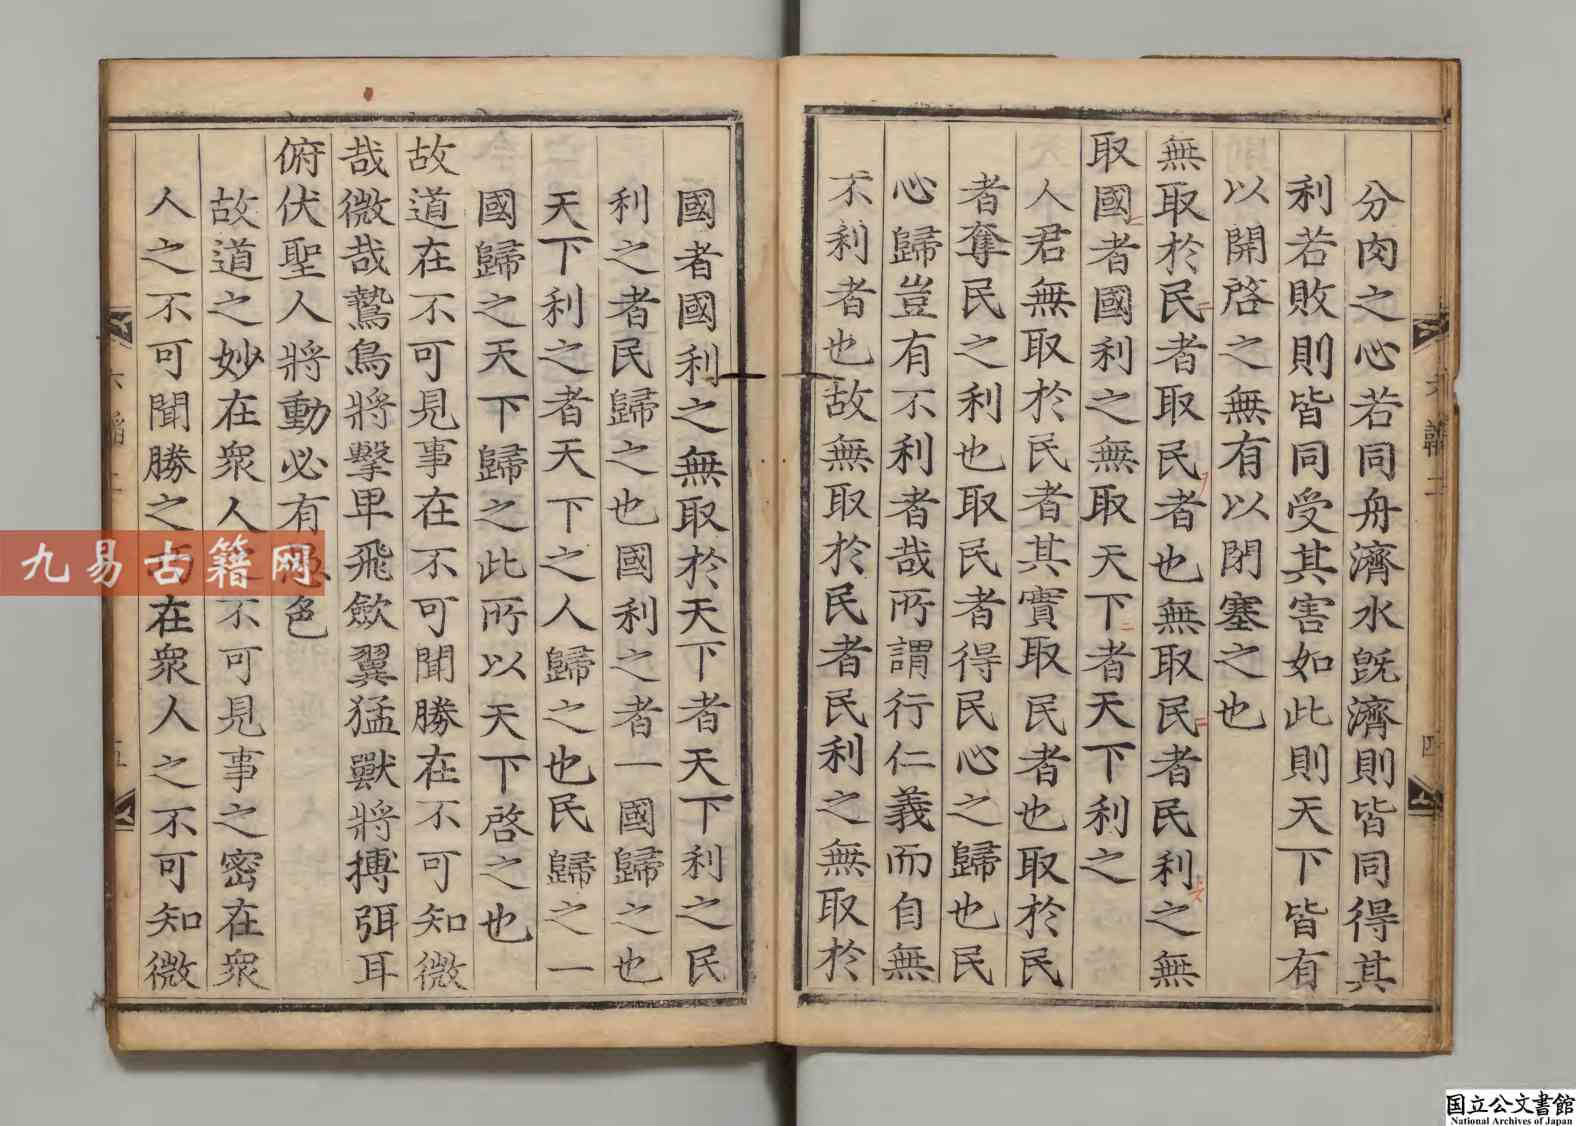 分肉之心若同舟濟水旣濟則皆同得其
利若敗則皆同受其害如此則天下皆有
以開啓之無有以閉塞之也
無取於民者取民者也無取民者民利之無
取國者國利之無取天下者天下利之
人君無取於民者其實取民者也取於民
者奪民之利也取民者得民心之歸也民
心歸豈有不利者哉所謂行仁義而自無
不利者也故無取於民者民利之無取於
國者國利之無取於天下者天下利之民
利之者民歸之也國利之者一國歸之也
天下利之者天下之人歸之也民歸之一
國歸之天下歸之此所以天下啓之也
故道在不可見事在不可聞勝在不可知微
哉微哉鷙鳥將擊卑飛斂翼猛獸將搏弭耳
俯伏聖人將動必有愚色
故道之妙在衆人之不可見事之密在衆
人之不可聞勝之而在衆人之不可知微
六韜二
四
五
九易古籍网
国立公文書館
National Archives of Japan